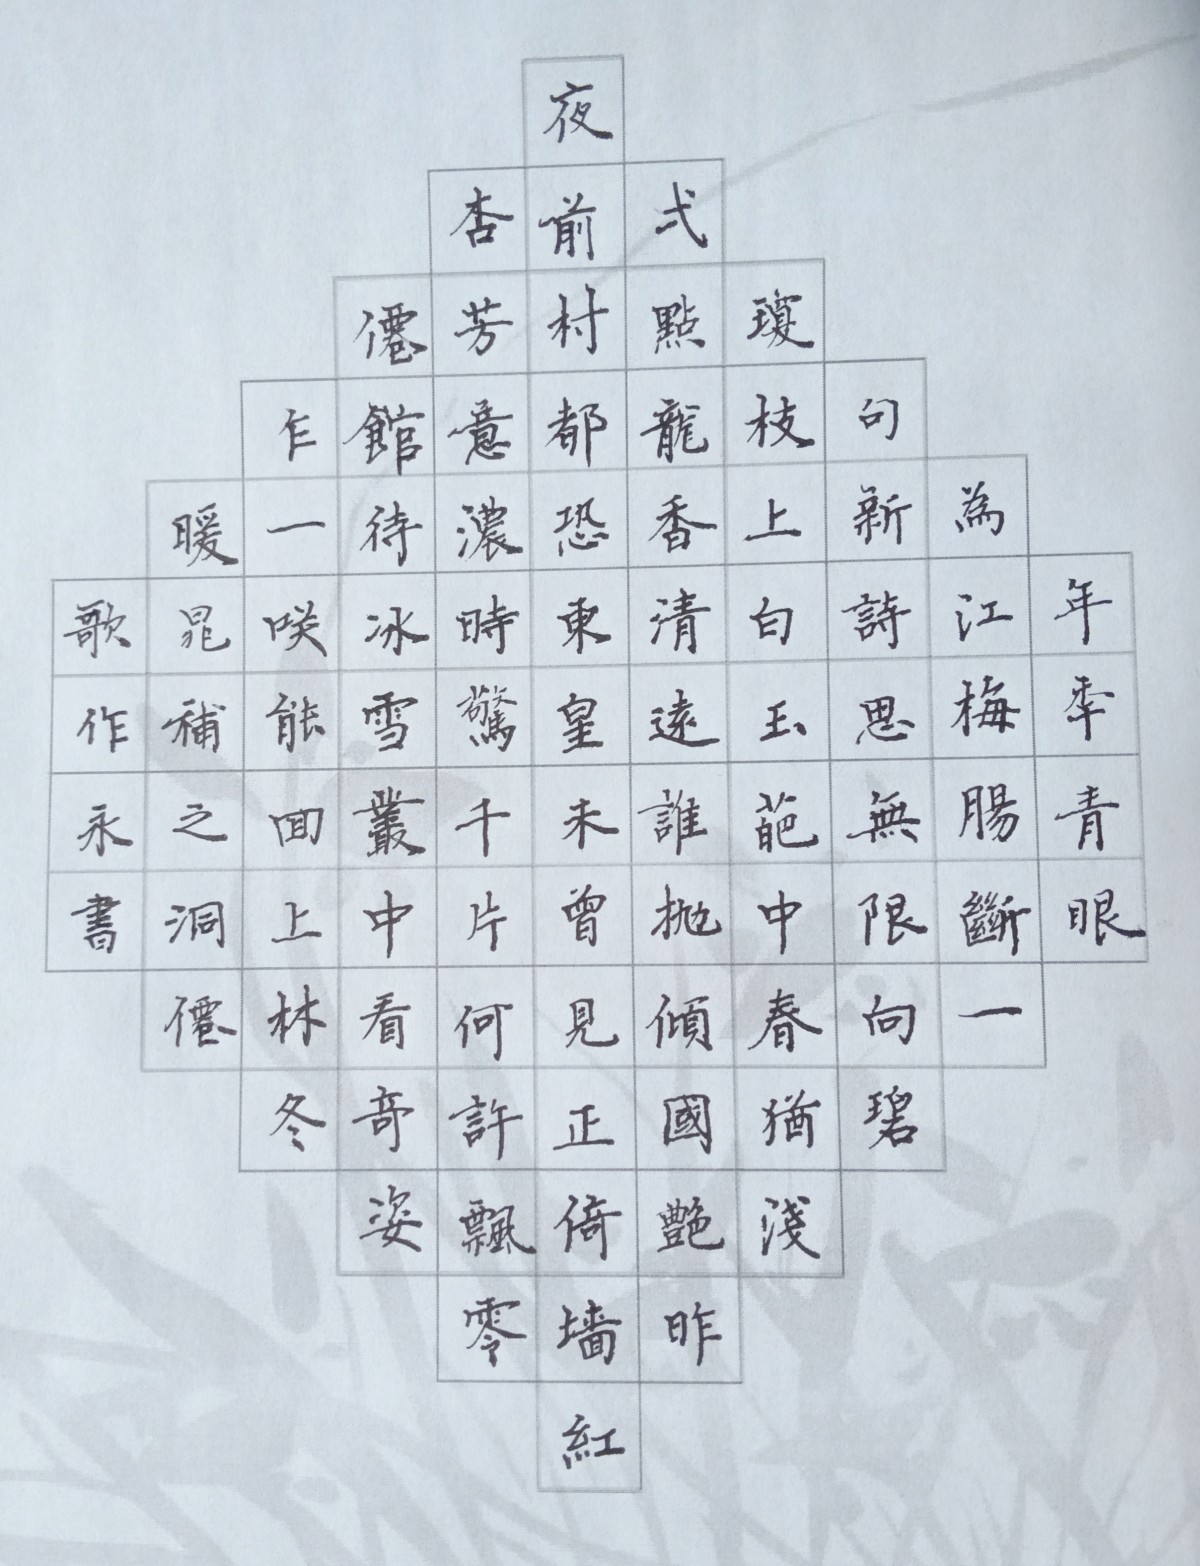 年秊青眼
為江梅腸斷一
句新詩思無限向碧
瓊枝上白玉葩中春猶淺
弌點龍香清遠誰拋傾國艷昨
夜前村都恐東皇未曾見正倚墻紅
杏芳意濃時驚千片何許飄零
僊館待冰雪叢中看奇姿
乍一咲能囬上林冬
暖晁補之洞僊
歌作永書